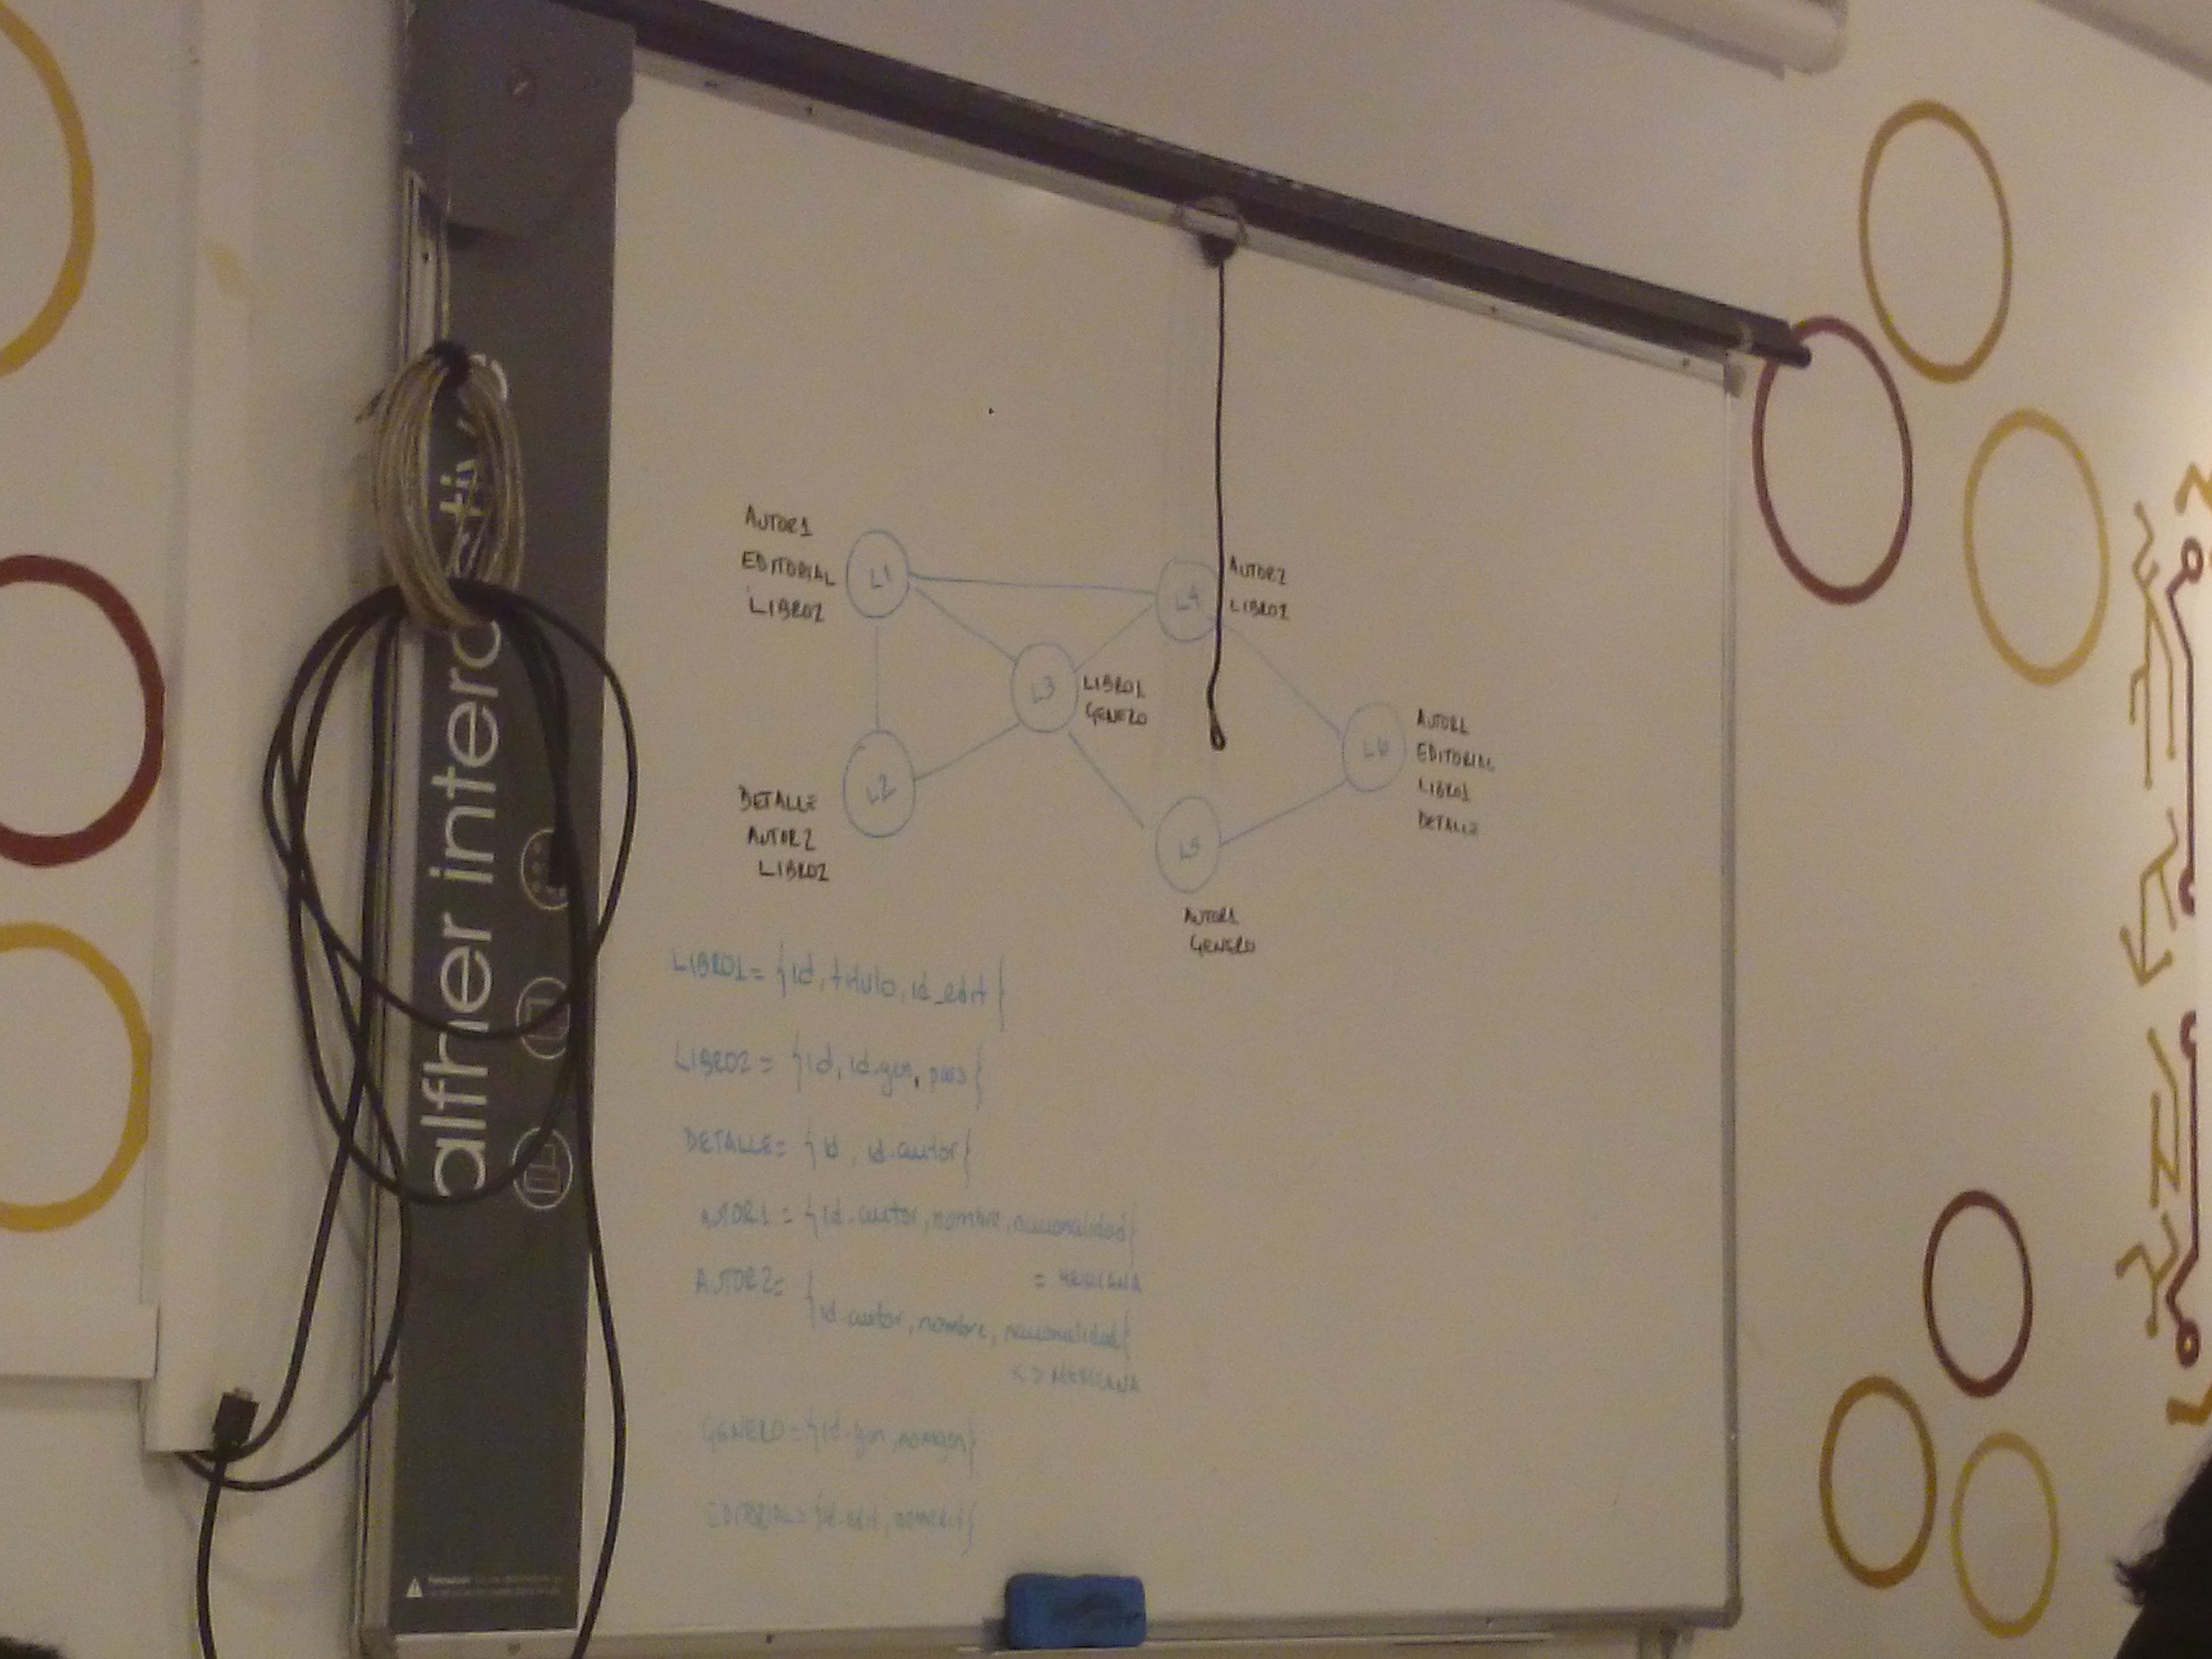 alfher interactivo
AUTOR1
EDITORIAL
LIBRO2
L1
L4
AUTOR2
LIBRO1
L3
LIBRO1
GENERO
L6
AUTOR1
EDITORIAL
LIBRO1
DETALLE
L2
DETALLE
AUTOR2
LIBRO2
L5
AUTOR1
GENERO
LIBRO1 = {id, titulo, id_edit}
LIBRO2 = {id, id.gen, pais}
DETALLE = {id, id.autor}
AUTOR1 = {id.autor, nombre, nacionalidad}
= MEXICANA
AUTOR2 =
{id.autor, nombre, nacionalidad}
<> MEXICANA
GENERO = {id.gen, nomgen}
EDITORIAL = {id.edit, nomedit}